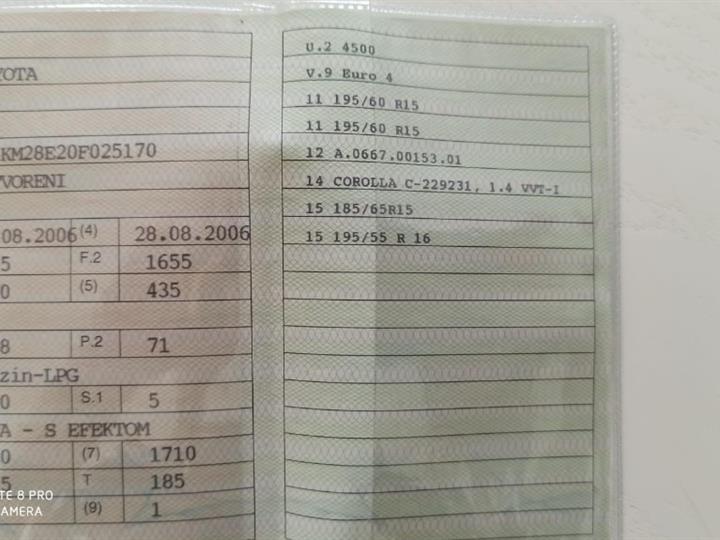 YOTA
KM28E20F025170
VORENI
08.2006 (4) 28.08.2006
5 F.2 1655
0 (5) 435
8 P.2 71
zin-LPG
0 S.1 5
A - S EFEKTOM
0 (7) 1710
5 T 185
(9) 1
TE 8 PRO
AMERA
U.2 4500
V.9 Euro 4
11 195/60 R15
11 195/60 R15
12 A.0667.00153.01
14 COROLLA C-229231, 1.4 VVT-I
15 185/65R15
15 195/55 R 16